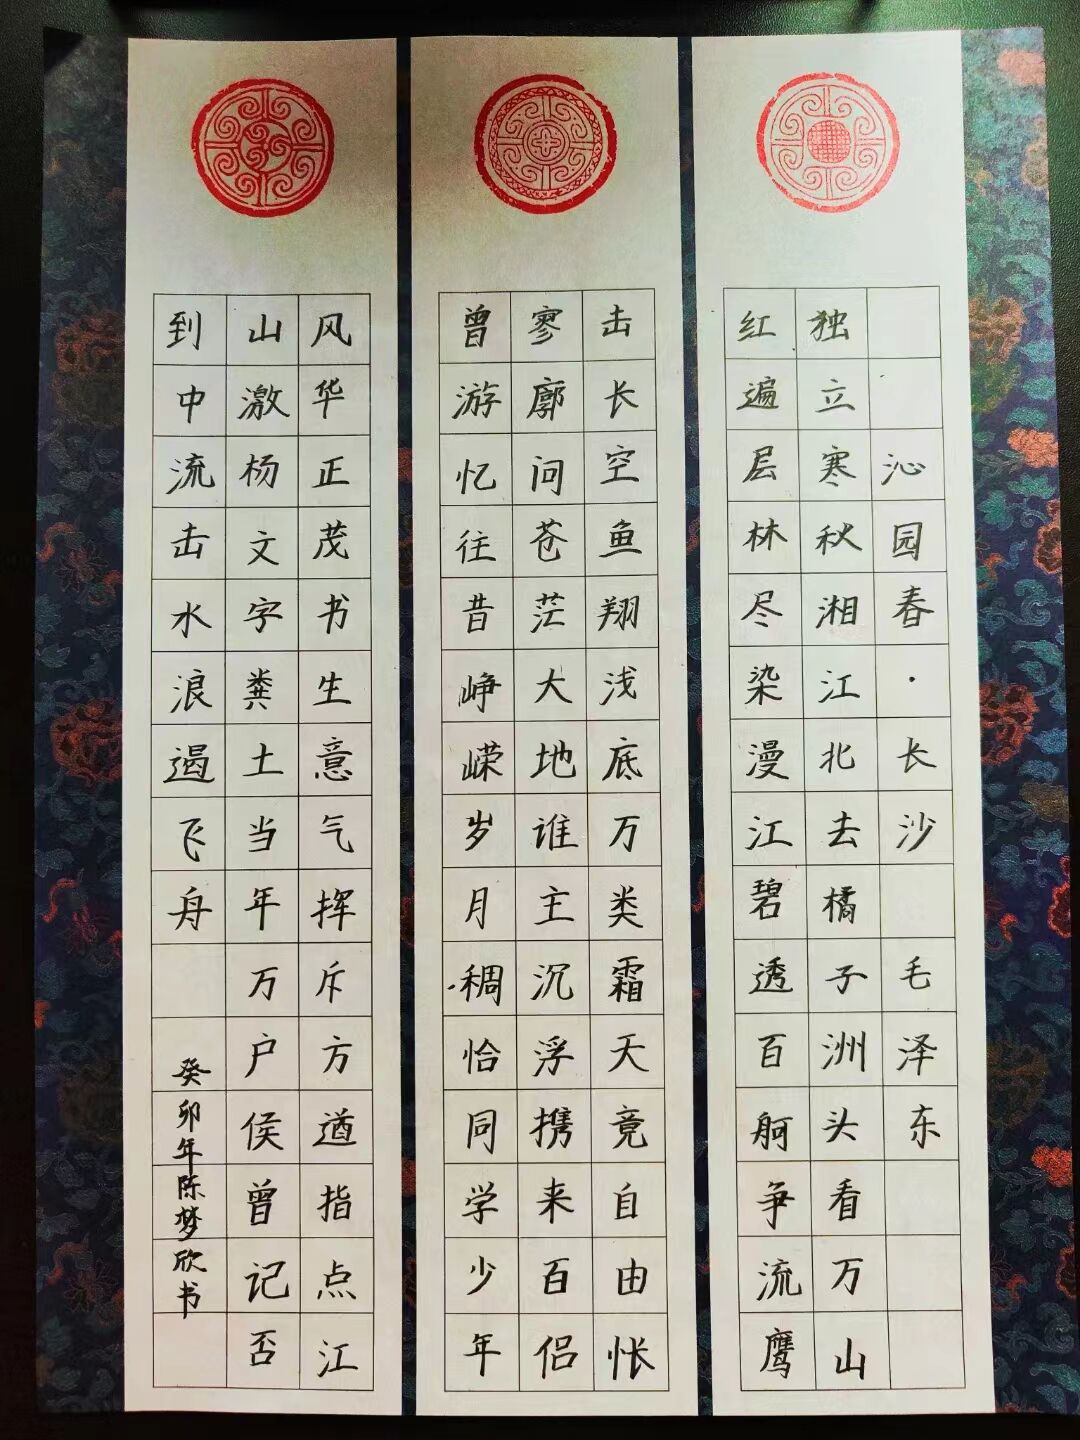 沁园春·长沙 毛泽东
独立寒秋湘江北去橘子洲头看万山
红遍层林尽染漫江碧透百舸争流鹰
击长空鱼翔浅底万类霜天竟自由怅
寥廓问苍茫大地谁主沉浮携来百侣
曾游忆往昔峥嵘岁月稠恰同学少年
风华正茂书生意气挥斥方遒指点江
山激杨文字粪土当年万户侯曾记否
到中流击水浪遏飞舟
癸卯年陈梦欣书